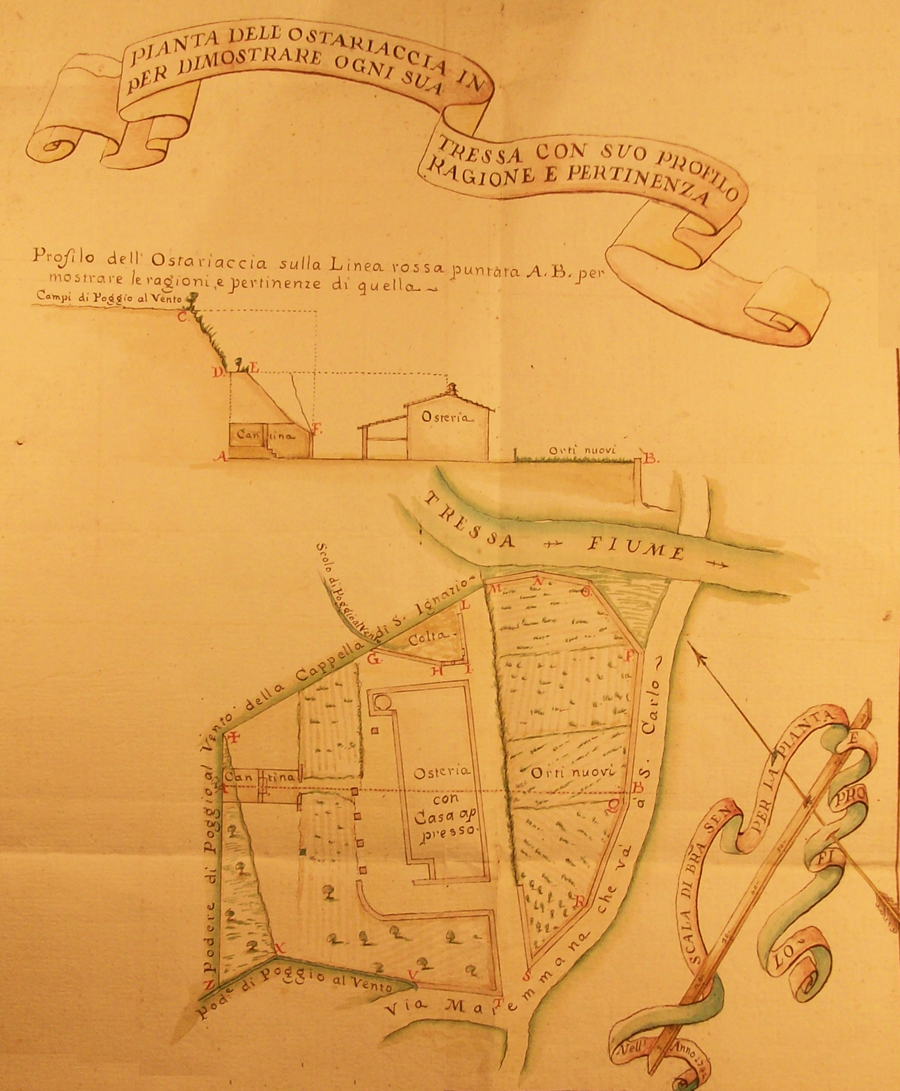 PIANTA DELL'OSTARIACCIA IN
PER DIMOSTRARE OGNI SUA
TRESSA CON SUO PROFILO
RAGIONE E PERTINENZA
Profilo dell'Ostariaccia sulla Linea rossa puntata A.B. per
mostrare le ragioni, e pertinenze di quella
Campi di Poggio al Vento
C
D. E
Osteria
Cantina
F.
Orti nuovi
A
B.
TRESSA FIUME
Scolo di Poggio al Vento
M N O
L
Colta
G.
H I
P
Podere di Poggio al Vento della Cappella di S. Ignazio
Cantina
A
Osteria
con
Casa ap
presso.
Orti nuovi
B
Q
R
S
X
V
Z
T
Pode. di Poggio al Vento
Via Maremmana che và à S. Carlo
SCALA DI BRA SEN
PER LA PIANTA
E
PRO
FI
LO.
Nell' Anno